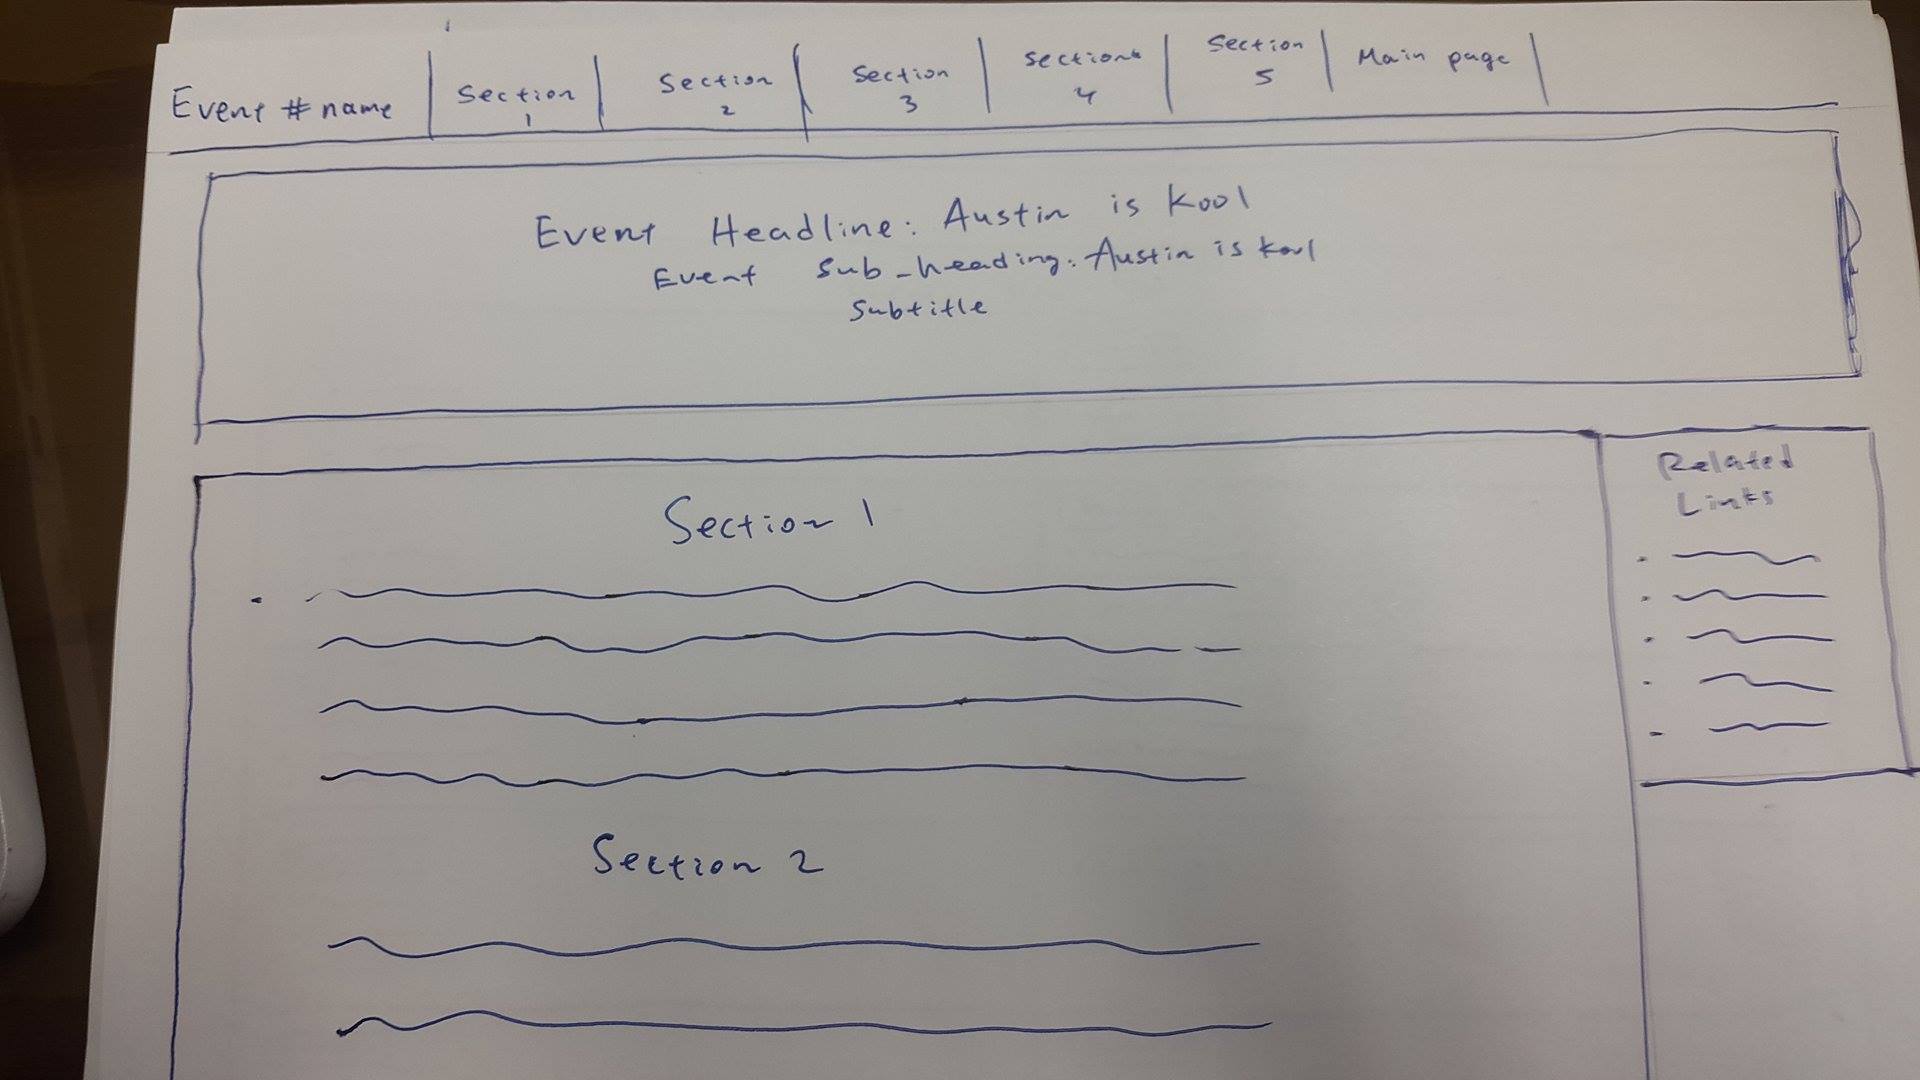 Event # name
Section
1
Section
2
Section
3
Section
4
Section
5
Main page
Event Headline: Austin is Kool
Event Sub-heading: Austin is kool
Subtitle
Section 1
Section 2
Related
Links